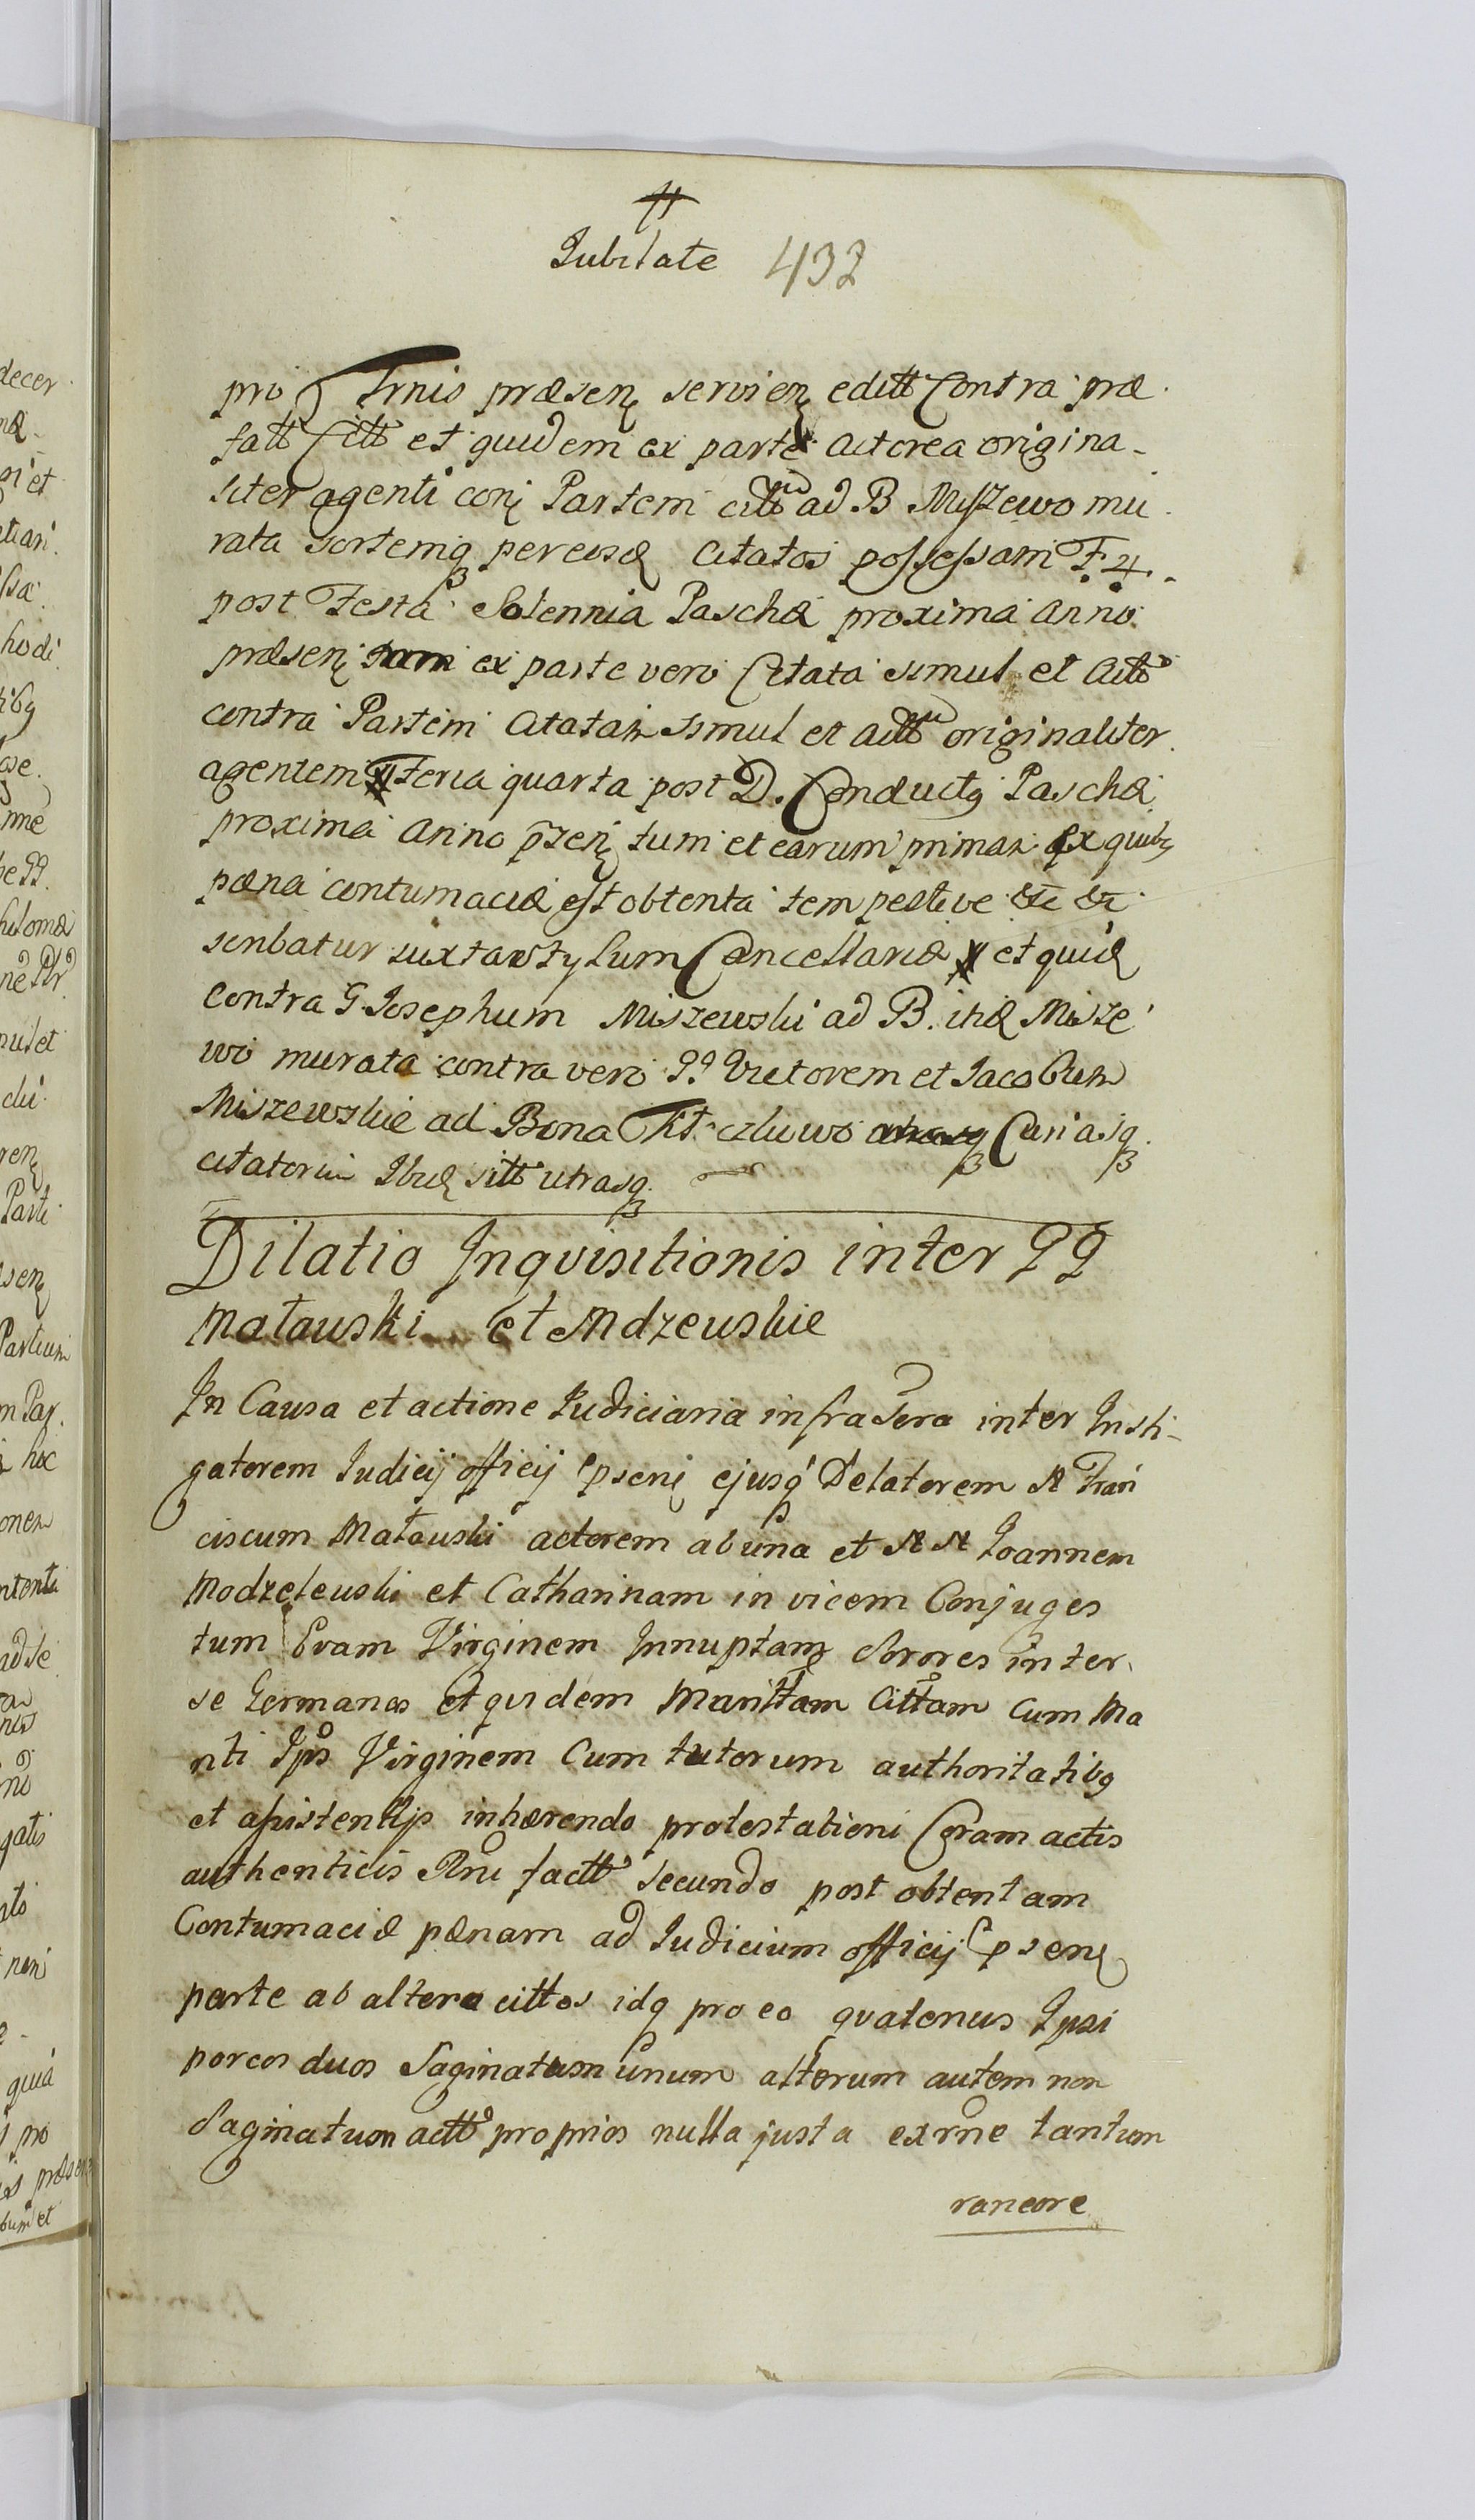 Jubilate 432
pro Trnis præsen servien editt Contra præ
fatt Citt et quidem ex parte actorea origina-
liter agenti con Partem citt ad B Miszewo mu
rata sortemq per eosd citatos possessam F. 4.
post Festa Solennia Paschæ proxima anno
præsen ex parte vero Citata simul et actt
contra Partem Citatam simul et actt originaliter
agentem Feria quarta post D. Conductq Paschæ
proxima anno przen tum et earum primam ex quibq
pæna contumaciæ est obtenta tempestive &c &c
scribatur juxta Stylum Cancellariæ et quid
contra G Josephum Miszewski ad B. itid Misze
wo murata contra vero GG Victorem et Jacobum
Miszewskie ad Bona Curiasq
citatorum Ibid sitt utrasq
Dilatio Inqvisitionis inter GG
Matawski et Mdzewskie
In Causa et actione Judiciaria infra Sera inter Insti-
gatorem Judicij officij psenj ejusq Delatorem N Fran
ciscum Matauski actorem ab una et N N Joannem
Modzeleuski et Catharinam in vicem Conjuges
tum Evam Virginem Innuptam Sorores inter
se Germanas et qvidem Marittam Cittam cum Ma
riti Ipsa Virginem Cum tutorum authoritatibq
et assistentijs inhærendo protestationi Coram actis
authenticis Rni factt secundo post obtentam
Contumaciæ pænam ad Judicium officij psens
parte ab altera cittos idq pro eo qvatenus Ipsi
porcos duos Saginatum unum alterum autem non
Saginatum actt proprios nulla justa exrne tantum
rancore